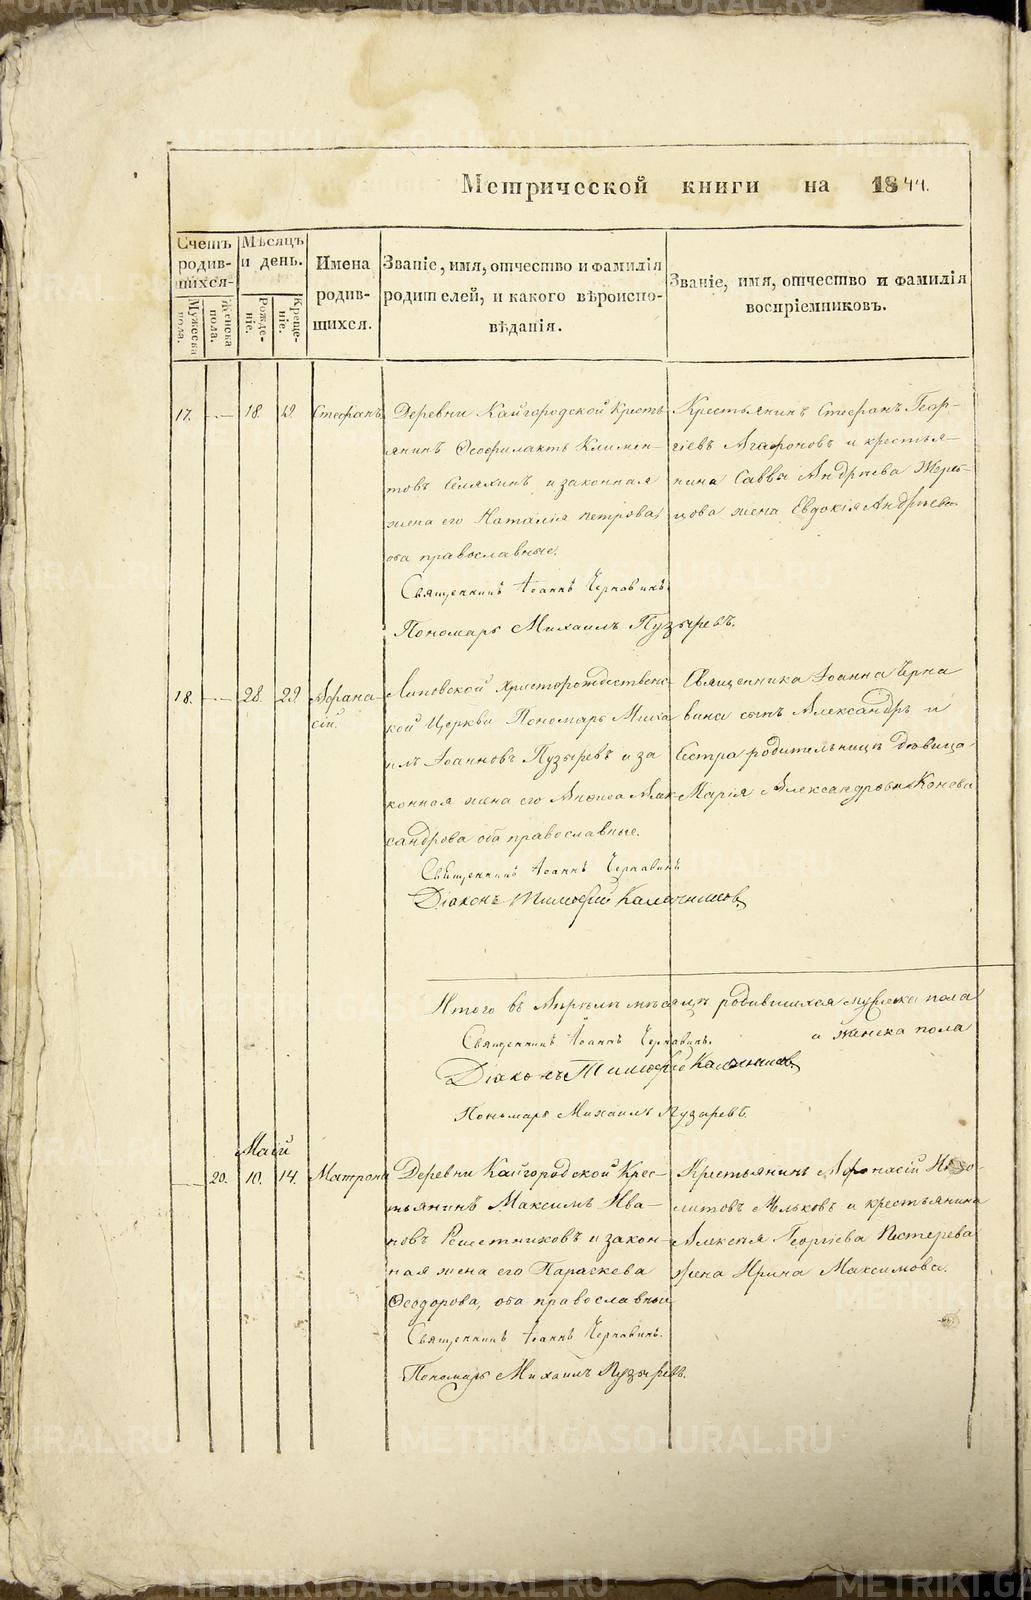 Метрической книги на 1844.
Счетъ родив-шихся.
Мужеска пола.
Женска пола.
Мѣсяцъ и день.
Рожде-ніе.
Креще-ніе.
Имена родив-шихся.
Званіе, имя, отчество и фамилія родителей, и какого вѣроиспо-вѣданія.
Званіе, имя, отчество и фамилія воспріемниковъ.
17. 18. Стефанъ
Деревни Кайгородской Кресть-
янинъ Ѳеофилактъ Климен-
товъ Селяхинъ и законная
жена его Наталія Петрова,
оба православные.
Священникъ Іоаннъ Чернавинъ
Пономарь Михаилъ Пузыревъ.
Крестьянинъ Стефанъ Геор-
гіевъ Агафоновъ и крестья-
нина Саввы Андреева
жена Евдокія Андреева
18. 28. 29. Афана-
сій.
Липовской Христорождественс-
кой Церкви Пономарь Миха-
илъ Іоанновъ Пузыревъ и за
конная жена его Алек-
сандрова оба православные.
Священникъ Іоаннъ Чернавинъ
Діаконъ Тимофей
Священника Іоанна Черна
вина сынъ Александръ и
Сестра родительницы дѣвица
Марія Александровна Конева
Итого въ Апрѣлѣ мѣсяцѣ родившихся мужеска пола
и женска пола
Священникъ Іоаннъ Чернавинъ.
Діаконъ Тимофей
Пономарь Михаилъ Пузыревъ.
Маій
20. 10. 14. Матрона
Деревни Кайгородской Крес-
тьянинъ Максимъ Ива-
новъ Решетниковъ и закон-
ная жена его Параскева
Ѳеодорова, оба православные
Священникъ Іоаннъ Чернавинъ.
Пономарь Михаилъ Пузыревъ.
Крестьянинъ Афонасій Иппо-
литовъ и крестьянина
Алексія Георгіева Пестерева
жена Ирина Максимова.
METRIKI.GASO-URAL.RU